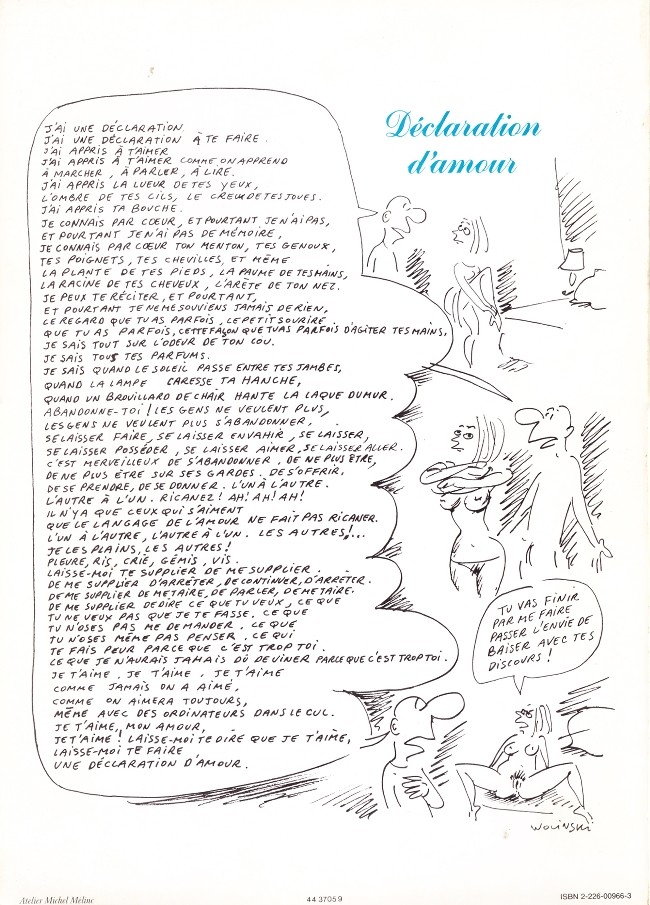 Déclaration
d'amour
J'AI UNE DÉCLARATION.
J'AI UNE DÉCLARATION À TE FAIRE.
J'AI APPRIS À T'AIMER
J'AI APPRIS À T'AIMER COMME ON APPREND
À MARCHER, À PARLER, À LIRE.
J'AI APPRIS LA LUEUR DE TES YEUX,
L'OMBRE DE TES CILS, LE CREUX DE TES JOUES.
J'AI APPRIS TA BOUCHE.
JE CONNAIS PAR CŒUR, ET POURTANT JE N'AI PAS,
ET POURTANT JE N'AI PAS DE MÉMOIRE,
JE CONNAIS PAR CŒUR TON MENTON, TES GENOUX,
TES POIGNETS, TES CHEVILLES, ET MÊME
LA PLANTE DE TES PIEDS, LA PAUME DE TES MAINS,
LA RACINE DE TES CHEVEUX, L'ARÊTE DE TON NEZ.
JE PEUX TE RÉCITER, ET POURTANT,
ET POURTANT JE NE ME SOUVIENS JAMAIS DE RIEN,
LE REGARD QUE TU AS PARFOIS, LE PETIT SOURIRE
QUE TU AS PARFOIS, CETTE FAÇON QUE TU AS PARFOIS D'AGITER TES MAINS,
JE SAIS TOUT SUR L'ODEUR DE TON COU.
JE SAIS TOUS TES PARFUMS.
JE SAIS QUAND LE SOLEIL PASSE ENTRE TES JAMBES,
QUAND LA LAMPE CARESSE TA HANCHE,
QUAND UN BROUILLARD DE CHAIR HANTE LA LAQUE DU MUR.
ABANDONNE-TOI ! LES GENS NE VEULENT PLUS,
LES GENS NE VEULENT PLUS S'ABANDONNER,
SE LAISSER FAIRE, SE LAISSER ENVAHIR, SE LAISSER,
SE LAISSER POSSÉDER, SE LAISSER AIMER, SE LAISSER ALLER.
C'EST MERVEILLEUX DE S'ABANDONNER, DE NE PLUS ÊTRE,
DE NE PLUS ÊTRE SUR SES GARDES. DE S'OFFRIR.
DE SE PRENDRE, DE SE DONNER. L'UN À L'AUTRE.
L'AUTRE À L'UN. RICANEZ ! AH! AH! AH!
IL N'Y A QUE CEUX QUI S'AIMENT
QUE LE LANGAGE DE L'AMOUR NE FAIT PAS RICANER.
L'UN À L'AUTRE, L'AUTRE À L'UN. LES AUTRES !...
JE LES PLAINS, LES AUTRES !
PLEURE, RIS, CRIE, GÉMIS, VIS.
LAISSE-MOI TE SUPPLIER DE ME SUPPLIER.
DE ME SUPPLIER D'ARRÊTER, DE CONTINUER, D'ARRÊTER.
DE ME SUPPLIER DE ME TAIRE, DE PARLER, DE ME TAIRE.
DE ME SUPPLIER DE DIRE CE QUE TU VEUX, CE QUE
TU NE VEUX PAS QUE JE TE FASSE. CE QUE
TU N'OSES PAS ME DEMANDER. CE QUE
TU N'OSES MÊME PAS PENSER. CE QUI
TE FAIS PEUR PARCE QUE C'EST TROP TOI.
CE QUE JE N'AURAIS JAMAIS DÛ DEVINER PARCE QUE C'EST TROP TOI.
JE T'AIME. JE T'AIME. JE T'AIME
COMME JAMAIS ON A AIMÉ,
COMME ON AIMERA TOUJOURS,
MÊME AVEC DES ORDINATEURS DANS LE CUL.
JE T'AIME, MON AMOUR,
JE T'AIME ! LAISSE-MOI TE DIRE QUE JE T'AIME,
LAISSE-MOI TE FAIRE
UNE DÉCLARATION D'AMOUR.
TU VAS FINIR
PAR ME FAIRE
PASSER L'ENVIE DE
BAISER AVEC TES
DISCOURS !
WOLINSKI
Atelier Michel Méline
44 3705 9
ISBN 2-226-00966-3